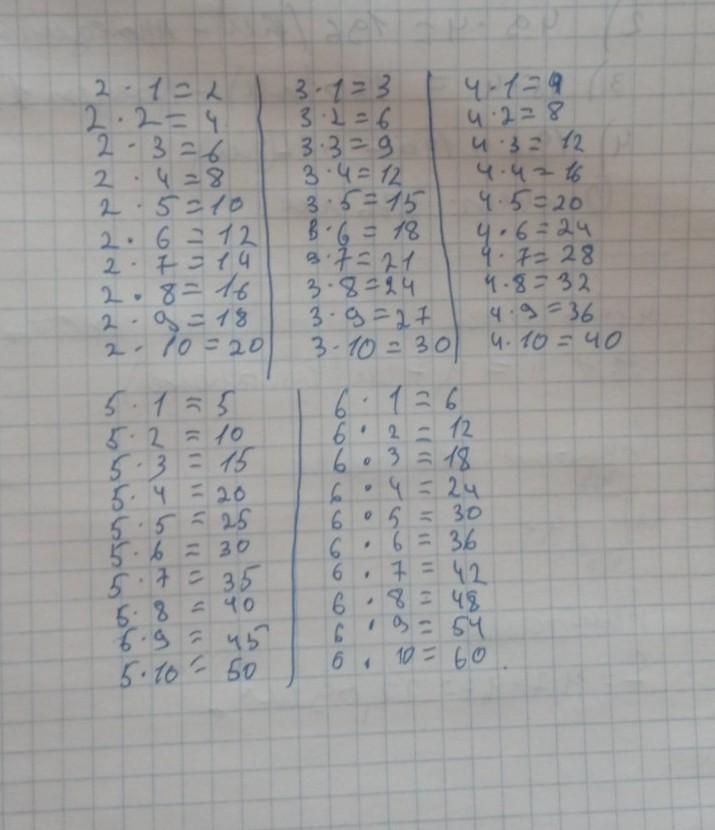 2 · 1 = 2
2 · 2 = 4
2 · 3 = 6
2 · 4 = 8
2 · 5 = 10
2 · 6 = 12
2 · 7 = 14
2 · 8 = 16
2 · 9 = 18
2 · 10 = 20
3 · 1 = 3
3 · 2 = 6
3 · 3 = 9
3 · 4 = 12
3 · 5 = 15
3 · 6 = 18
3 · 7 = 21
3 · 8 = 24
3 · 9 = 27
3 · 10 = 30
4 · 1 = 4
4 · 2 = 8
4 · 3 = 12
4 · 4 = 16
4 · 5 = 20
4 · 6 = 24
4 · 7 = 28
4 · 8 = 32
4 · 9 = 36
4 · 10 = 40
5 · 1 = 5
5 · 2 = 10
5 · 3 = 15
5 · 4 = 20
5 · 5 = 25
5 · 6 = 30
5 · 7 = 35
5 · 8 = 40
5 · 9 = 45
5 · 10 = 50
6 · 1 = 6
6 · 2 = 12
6 · 3 = 18
6 · 4 = 24
6 · 5 = 30
6 · 6 = 36
6 · 7 = 42
6 · 8 = 48
6 · 9 = 54
6 · 10 = 60.